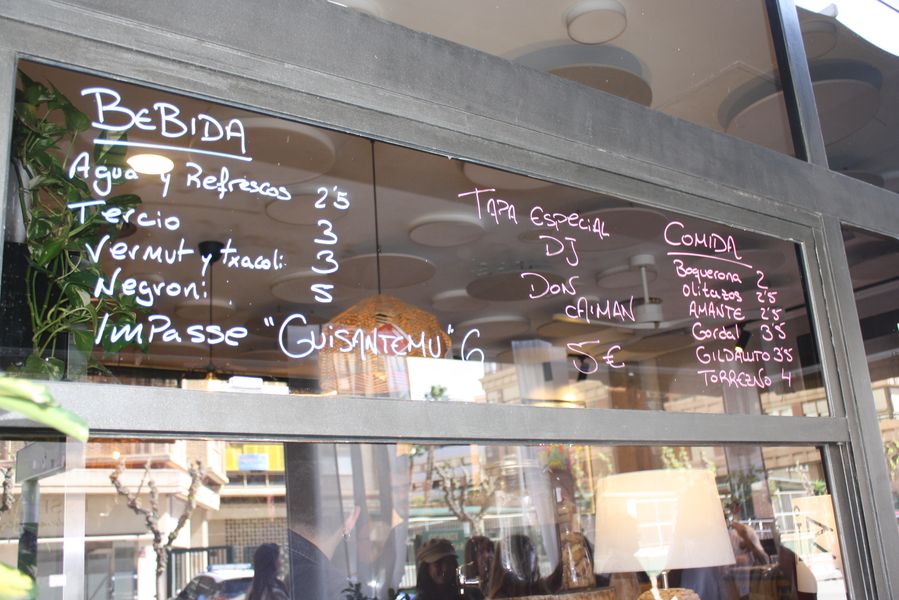 BeBIDA
Agua y Refrescos 2'5
Tercio 3
Vermut y txacoli 3
Negroni 5
ImPasse "GuisANTEMU" 6
TAPA ESPECIAL
DJ
DON
CAIMAN
5€
COMIDA
Boquerona 2
Olitazos 2'5
AMANTE 2'5
Gordal 3'5
GILDAUTO 3'5
TORREZNO 4